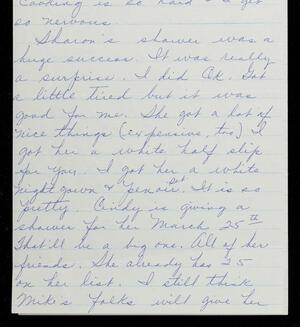 Cooking is so hard & I get
so nervous.
Sharon's shower was a
huge success. It was really
a surprise. I did Ok. Got
a little tired but it was
good for me. She got a lot of
nice things (expensive, too) I
got her a white half slip
for you. I got her a white
nightgown & penoir Set. It is so
pretty. Cindy is giving a
shower for her March 25th
That'll be a big one. All of her
friends. She already has 35
on her list. I still think
Mike's folks will give her